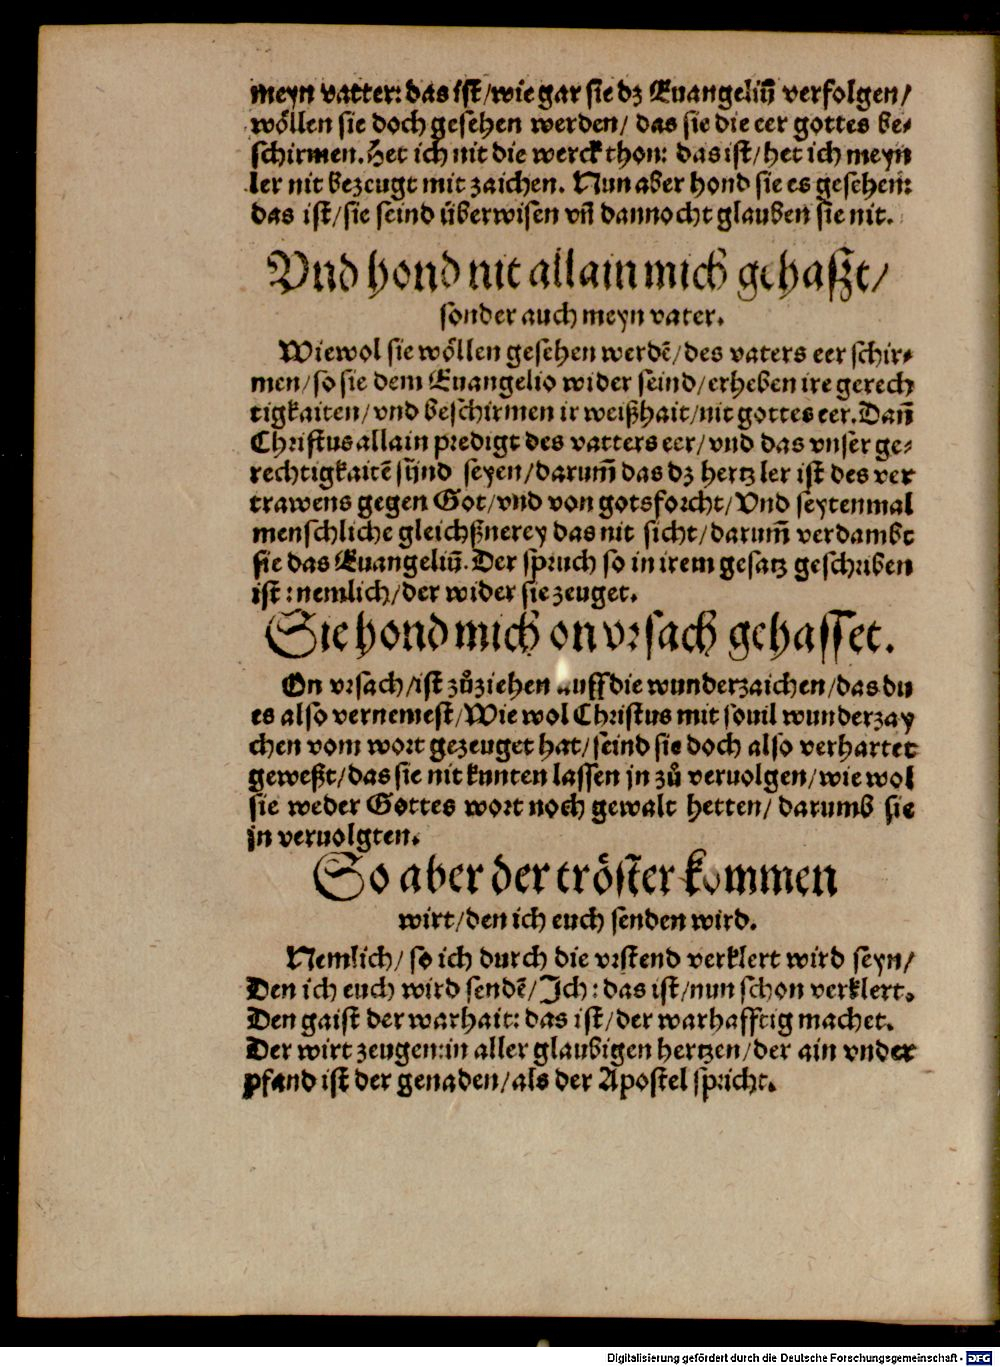 meyn vatter: das ist/wie gar sie dz Euangeliū verfolgen/
wöllen sie doch gesehen werden/ das sie die eer gottes be⸗
schirmen. Het ich nit die werck thon: das ist/het ich meyn
ler nit bezeugt mit zaichen. Nun aber hond sie es gesehen:
das ist/sie seind überwisen vñ dannocht glauben sie nit.
Vnd hond nit allain mich gehaßt/
sonder auch meyn vater.
Wiewol sie wöllen gesehen werdē/des vaters eer schir⸗
men/so sie dem Euangelio wider seind/erheben ire gerech
tigkaiten/vnd beschirmen ir weißhait/nit gottes eer. Dañ
Christus allain predigt des vatters eer/vnd das vnser ge⸗
rechtigkaitē sünd seyen/darum̄ das dz hertz ler ist des ver
trawens gegen Got/vnd von gotsforcht/Vnd seytenmal
menschliche gleichßnerey das nit sicht/darum̄ verdambt
sie das Euangeliū. Der spruch so in irem gesatz geschriben
ist: nemlich/der wider sie zeuget.
Sie hond mich on vrsach gehasset.
On vrsach/ist zůziehen auff die wunderzaichen/das du
es also vernemest/Wie wol Christus mit souil wunderzay
chen vom wort gezeuget hat/seind sie doch also verhartet
geweßt/das sie nit kunten lassen jn zů veruolgen/wie wol
sie weder Gottes wort noch gewalt hetten/ darumb sie
jn veruolgten.
So aber der tröster kommen
wirt/den ich euch senden wird.
Nemlich/ so ich durch die vrstend verklert wird seyn/
Den ich euch wird sendē/Ich: das ist/nun schon verklert.
Den gaist der warhait: das ist/der warhafftig machet.
Der wirt zeugen: in aller glaubigen hertzen/der ain vnder
pfand ist der genaden/als der Apostel spricht.
Digitalisierung gefördert durch die Deutsche Forschungsgemeinschaft - DFG